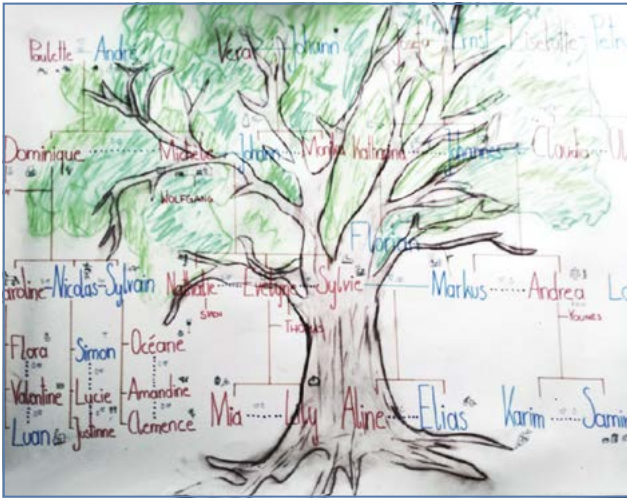 Paulette André Vera Johann Ernst Liselotte
Dominique Michèle Johann Monika Katharina Johannes Claudia
WOLFGANG
Florian
Nicolas Sylvain Nathalie Evelyne Sylvie Markus Andrea
THOMAS YOUNES
Flora Simon Océane
Valentine Lucie Amandine
Luan Justinne Clemence Mia Lily Aline Elias Karim